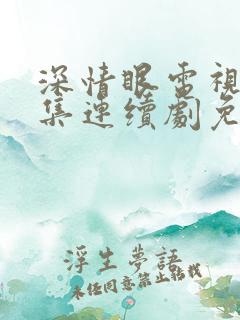 深情眼電視
集連續劇免
浮生夢語
未经同意禁止转载